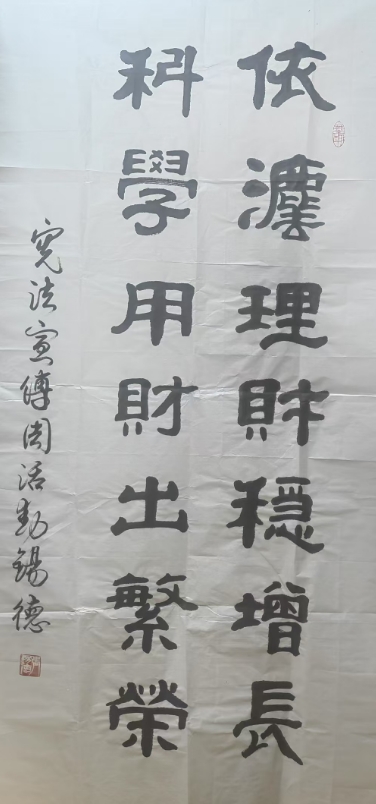 依灋理財穩增長
科學用財出繁榮
憲法宣傳周活動錫德